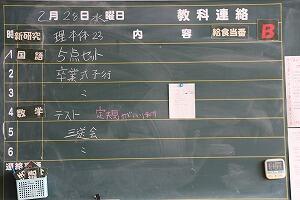 2月28日水曜日 教科連絡
時 新研究 理本体23 内容 給食当番 B
1 国語 5点セット
2 卒業式予行
3 〃
4 数学 テスト 定規がいります
5 三送会
6 〃